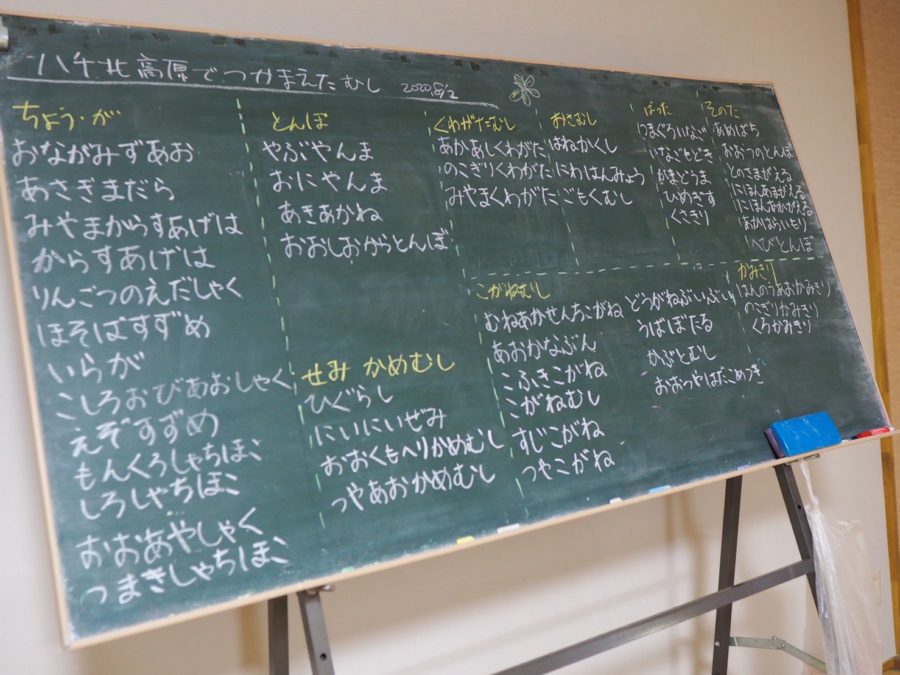 ハチ北高原でつかまえたむし 2020.8/2
ちょう・が
おながみずあお
あさぎまだら
みやまからすあげは
からすあげは
りんごつのえだしゃく
ほそばすずめ
いらが
こしろおびあおしゃく
えぞすずめ
もんくろしゃちほこ
しろしゃちほこ
おおあやしゃく
つまきしゃちほこ
とんぼ
やぶやんま
おにやんま
あきあかね
おおしおからとんぼ
せみ かめむし
ひぐらし
にいにいぜみ
おおくもへりかめむし
つやあおかめむし
くわがたむし
あかあしくわがた
のこぎりくわがた
みやまくわがた
おさむし
はねかくし
にわはんみょう
ごもくむし
ばった
つまぐろいなご
いなごもどき
かまどうま
ひめぎす
くさきり
そのた
あめばち
おおつのとんぼ
とのさまがえる
にほんあまがえる
にほんあかがえる
あかはらいもり
へびとんぼ
こがねむし
むねあかせんちこがね
あおかなぶん
こふきこがね
こがねむし
すじこがね
つやこがね
どうがねぶいぶい
うばぼたる
かぶとむし
かみきり
はんのうあおかみきり
のこぎりかみきり
くろかみきり